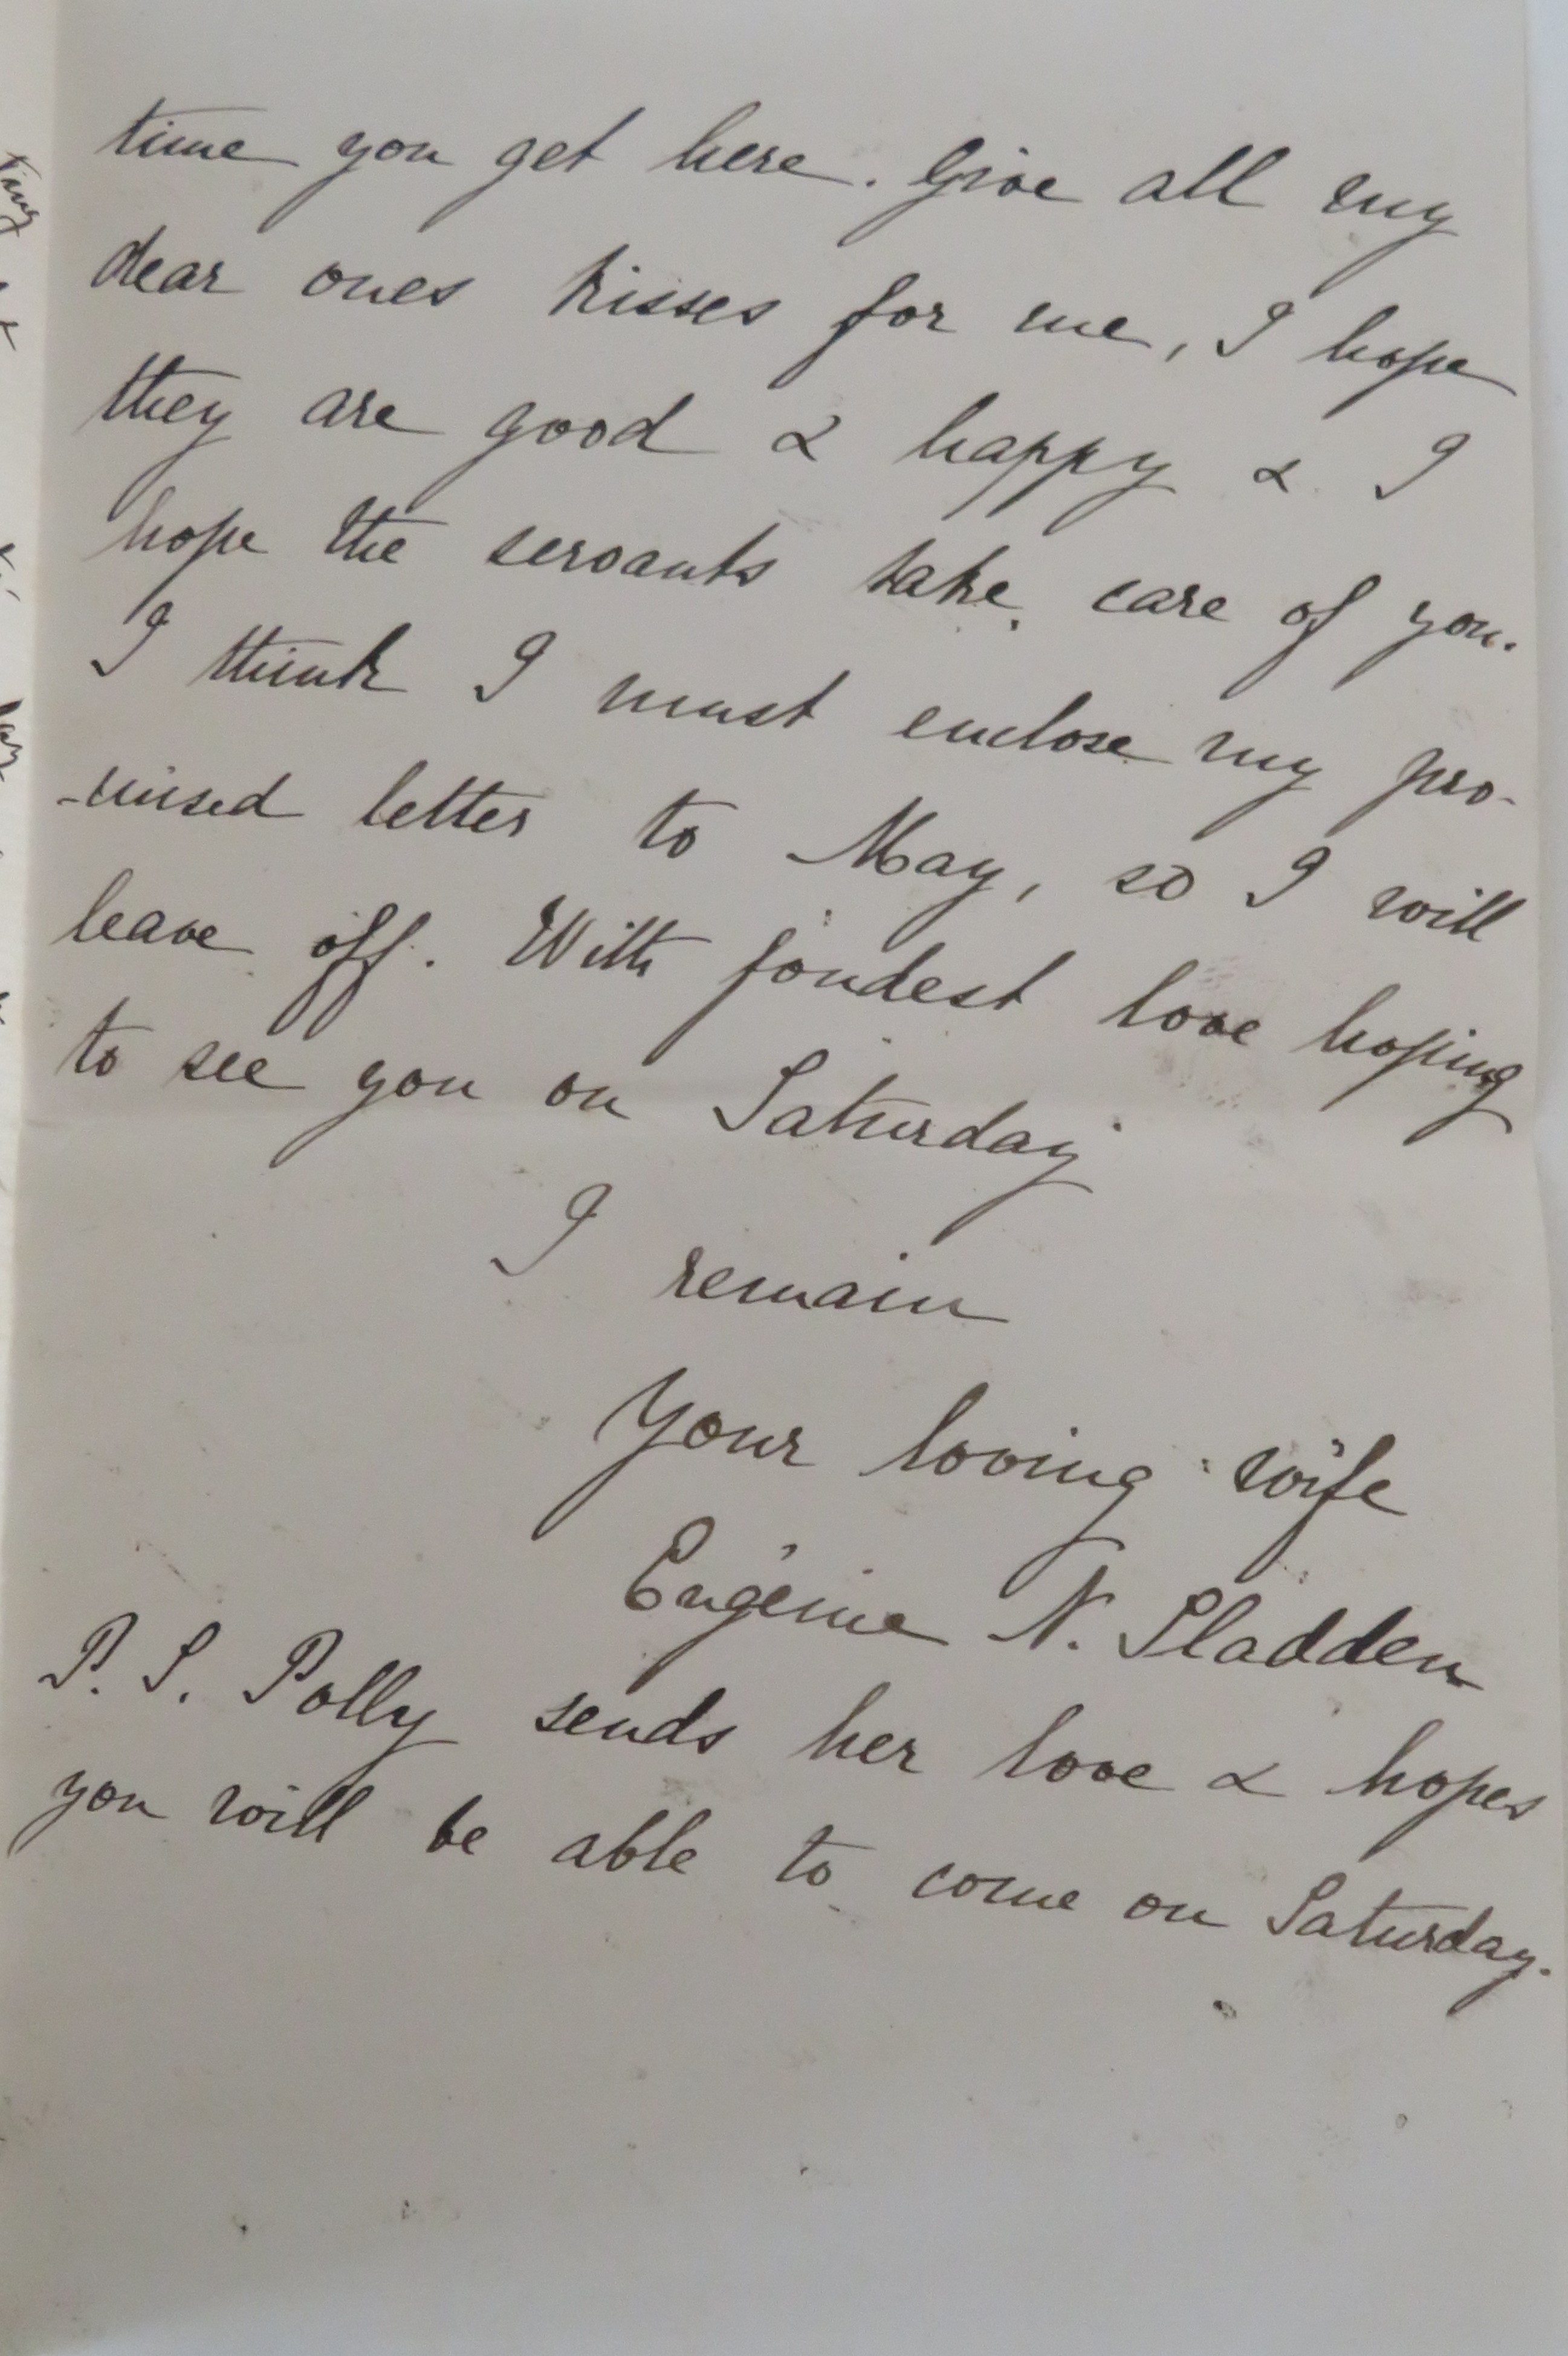 time you get here. Give all my
dear ones kisses for me, I hope
they are good & happy & I
hope the servants take care of you.
I think I must enclose my pro-
-mised letter to May, so I will
leave off. With fondest love hoping
to see you on Saturday
I remain
Your loving wife
Eugénie N. Sladden
P. S. Polly sends her love & hopes
you will be able to come on Saturday.